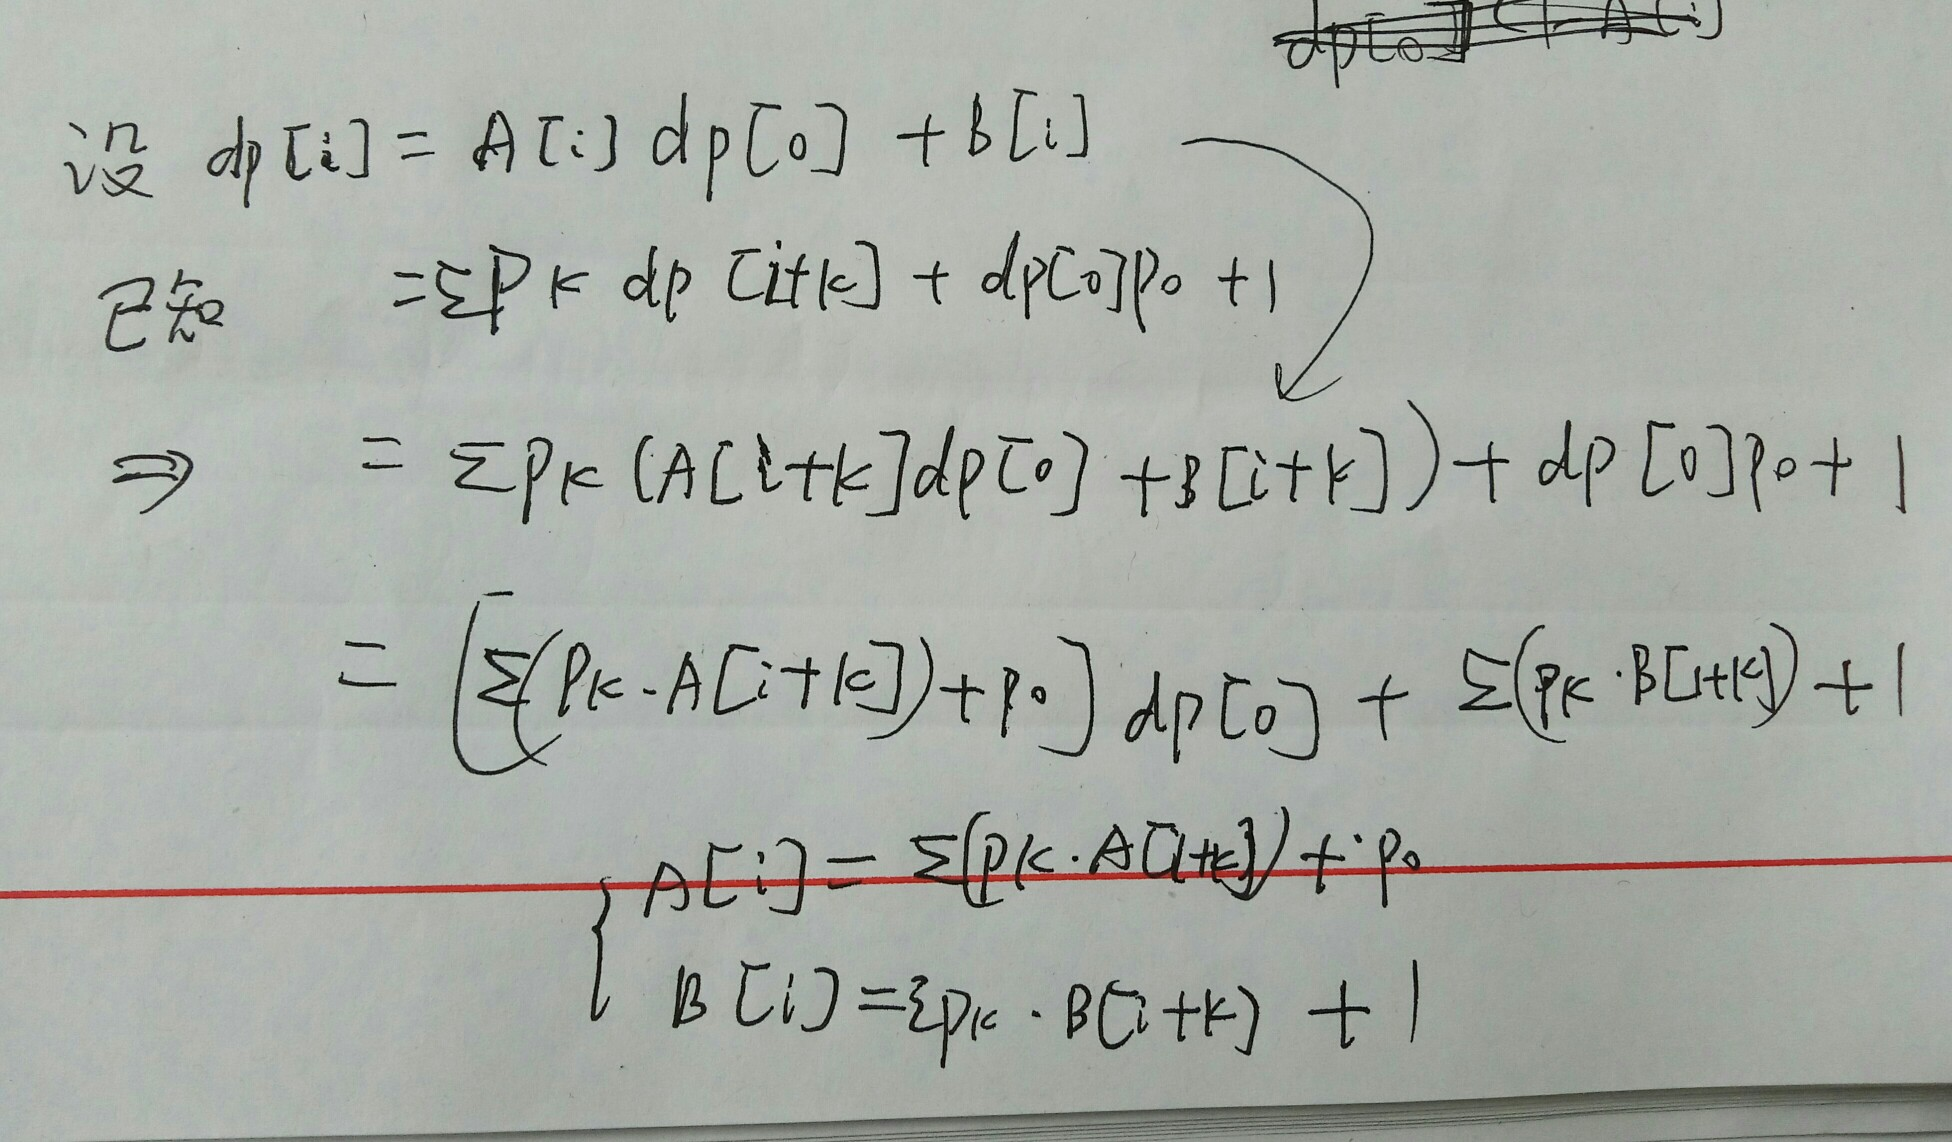 dp[0]
设 dp[i] = A[i] dp[0] + B[i]
已知 = Σ Pk dp [i+k] + dp[0]P0 + 1
⇒ = Σ Pk (A[i+k]dp[0] + B[i+k]) + dp[0]P0 + 1
= [Σ(Pk·A[i+k]) + P0] dp[0] + Σ(Pk·B[i+k]) + 1
{ A[i] = Σ(Pk·A[i+k]) + P0
B[i] = Σ Pk·B[i+k] + 1